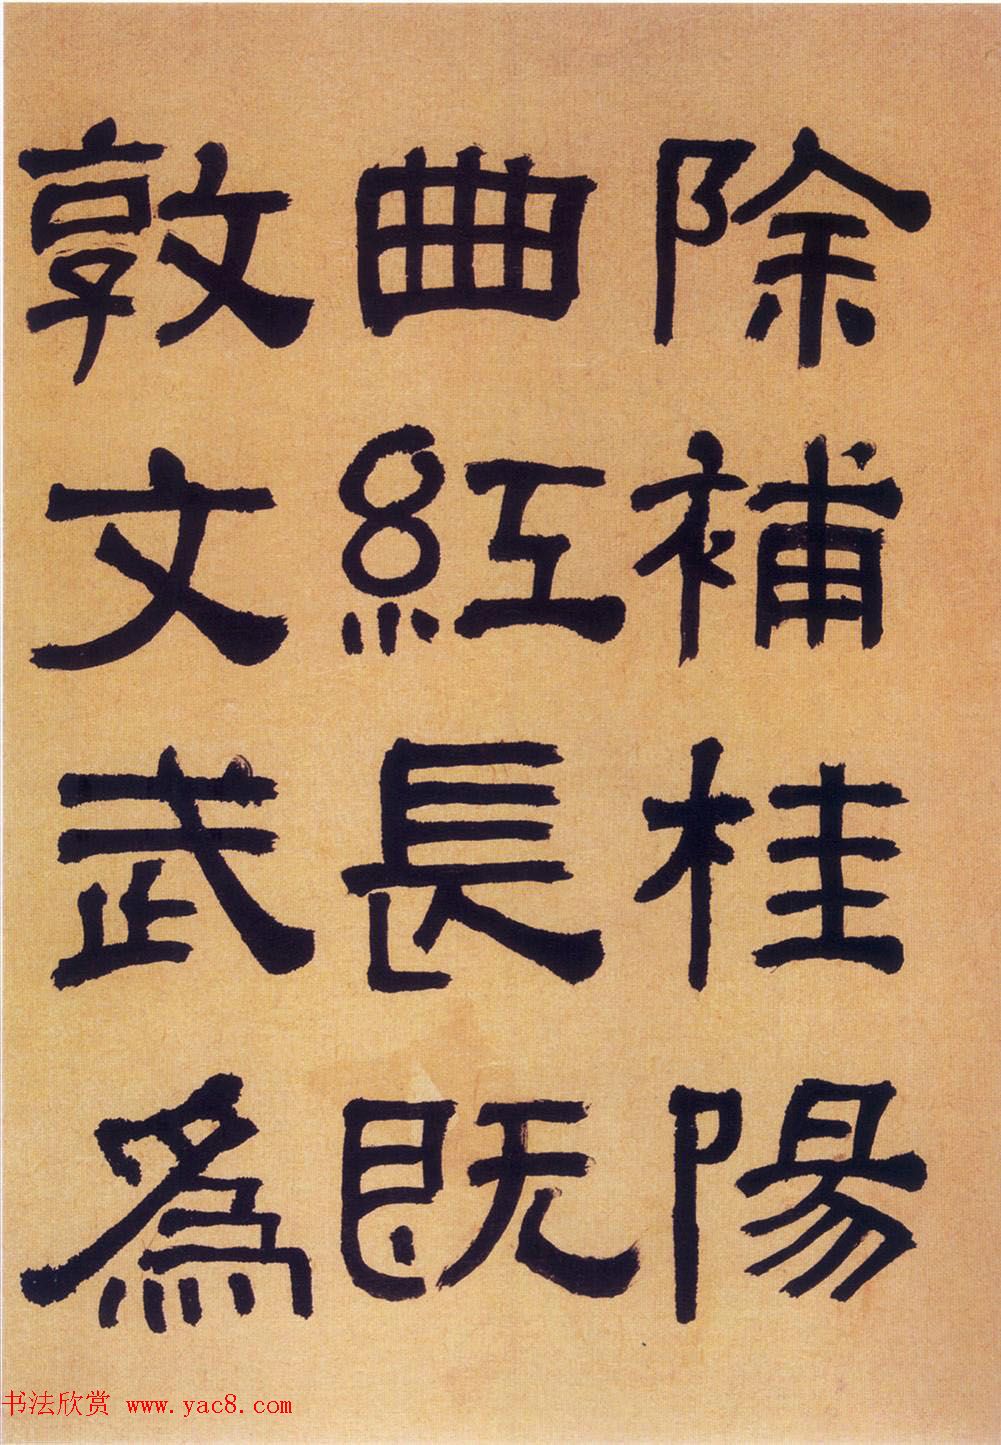 除補桂陽
曲紅長既
敦文武為
书法欣赏 www.yac8.com